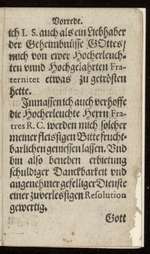 Vorrede.
ich I. S. auch als ein Liebhaber
der Geheimbnüsse GOttes/
mich von ewer Hocherleuch-
ten vnnd Hochgelahrten Fra-
ternitet etwas zu getrösten
hette.
Inmassen ich auch verhoffe
die Hocherleuchte Herrn Fra-
tres R. C. werden mich solcher
meiner fleissigen Bitte frucht-
barlichen geniessen lassen. Vnd
bin also beneben erbietung
schuldiger Danckbarkeit vnd
angenehmer geselliger Dienste
einer zuverlessigen Resolution
gewertig.
Gott